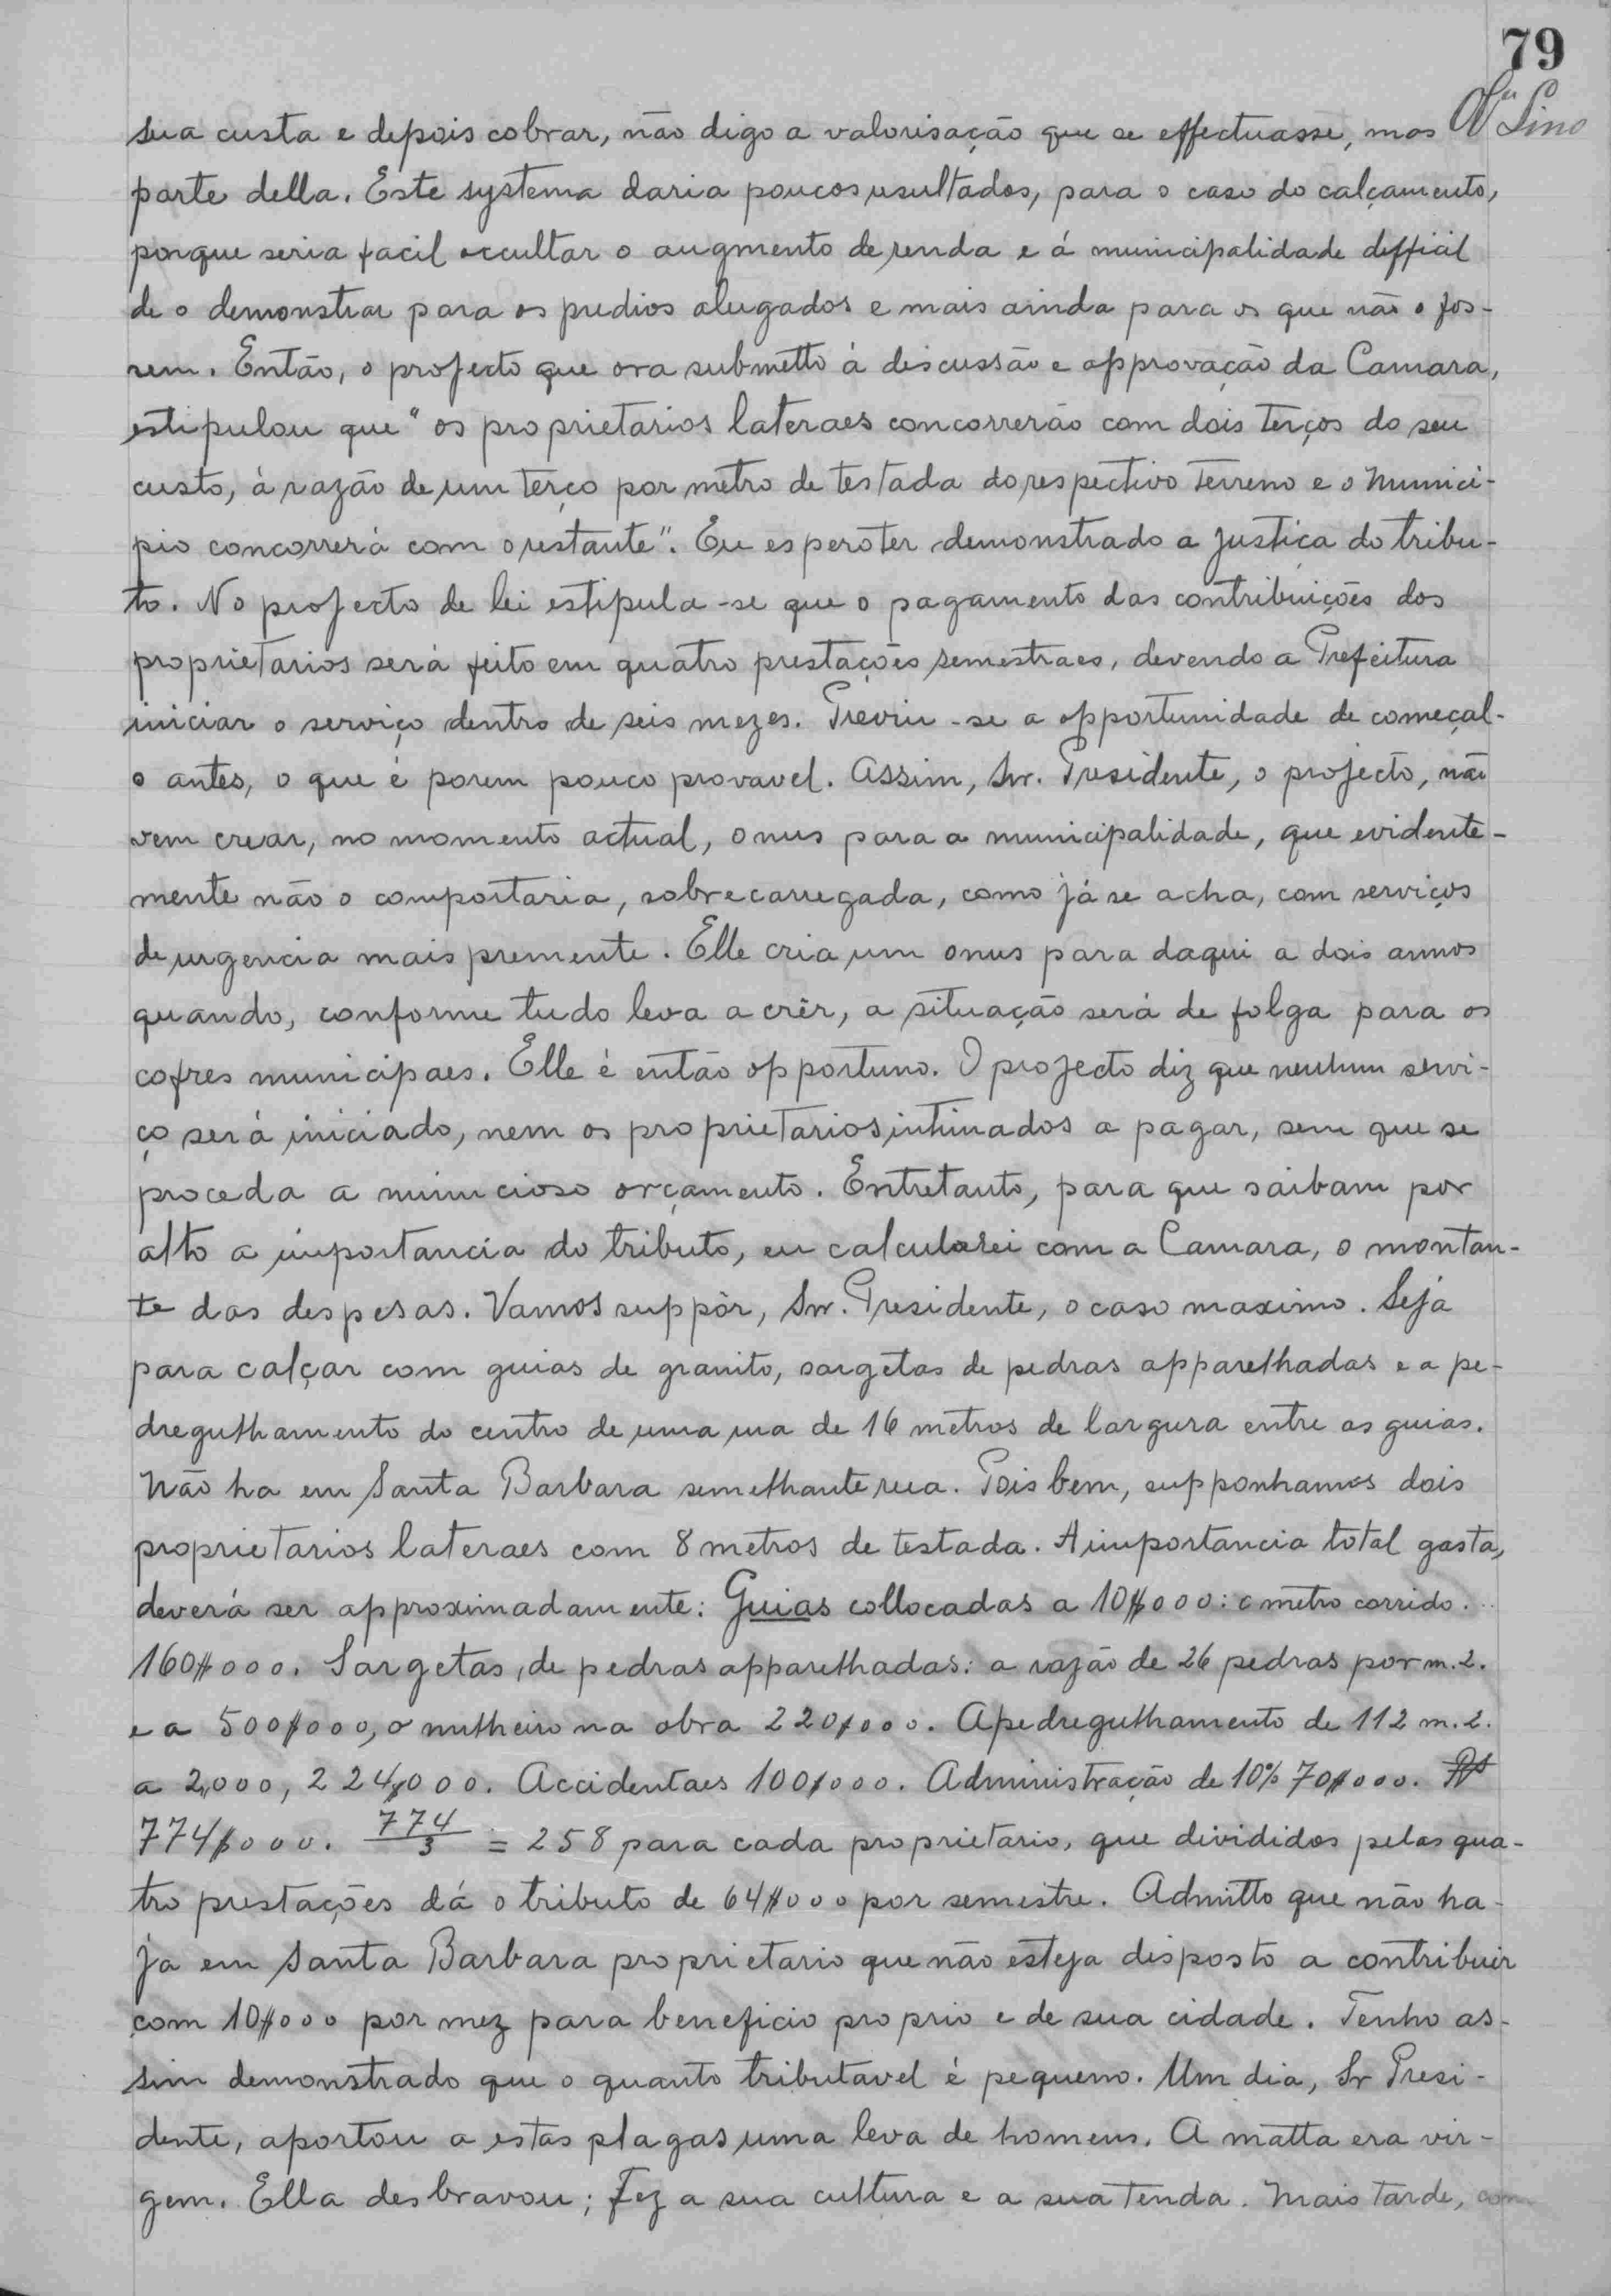 79
Lino
sua custa e depois cobrar, não digo a valorisação que se effectuasse, mas
parte della. Este systema daria poucos resultados, para o caso do calçamento,
porque seria facil occultar o augmento de renda e á municipalidade difficil
de o demonstrar para os predios alugados e mais ainda para os que não o fos-
sem. Então, o projecto que ora submetto á discussão e approvação da Camara,
estipulou que "os proprietarios lateraes concorrerão com dois terços do seu
custo, á razão de um terço por metro de testada do respectivo terreno e o Munici-
pio concorrerá com o restante". Eu espero ter demonstrado a justiça do tribu-
to. No projecto de lei estipula-se que o pagamento das contribuições dos
proprietarios será feito em quatro prestações semestraes, devendo a Prefeitura
iniciar o serviço dentro de seis mezes. Previu-se a opportunidade de começal-
o antes, o que é porem pouco provavel. Assim, Snr. Presidente, o projecto, não
vem crear, no momento actual, onus para a municipalidade, que evidente-
mente não o comportaria, sobrecarregada, como já se acha, com serviços
de urgencia mais premente. Elle cria um onus para daqui a dois annos
quando, conforme tudo leva a crêr, a situação será de folga para os
cofres municipaes. Elle é então opportuno. O projecto diz que nenhum servi-
ço será iniciado, nem os proprietarios intimados a pagar, sem que se
proceda a minucioso orçamento. Entretanto, para que saibam por
alto a importancia do tributo, eu calcularei com a Camara, o montan-
te das despesas. Vamos suppôr, Snr. Presidente, o caso maximo. Seja
para calçar com guias de granito, sargetas de pedras apparelhadas e a pe-
dregulhamento do centro de uma rua de 16 metros de largura entre as guias.
Não ha em Santa Barbara semelhante rua. Pois bem, supponhamos dois
proprietarios lateraes com 8 metros de testada. A importancia total gasta,
deverá ser approximadamente: Guias collocadas a 10$000: o metro corrido...
160$000. Sargetas, de pedras apparelhadas: a razão de 26 pedras por m.2.
e a 500$000, o milheiro na obra 220$000. Apedregulhamento de 112 m.2.
a 2,000, 224$000. Accidentaes 100$000. Administração de 10% 70$000. Rs
774$000. 774/3 = 258 para cada proprietario, que divididos pelas qua-
tro prestações dá o tributo de 64$000 por semestre. Admitto que não ha-
ja em Santa Barbara proprietario que não esteja disposto a contribuir
com 10$000 por mez para beneficio proprio e de sua cidade. Tenho as-
sim demonstrado que o quanto tributavel é pequeno. Um dia, Sr Presi-
dente, aportou a estas plagas uma leva de homens. A matta era vir-
gem. Ella desbravou; fez a sua cultura e a sua tenda. Mais tarde, com